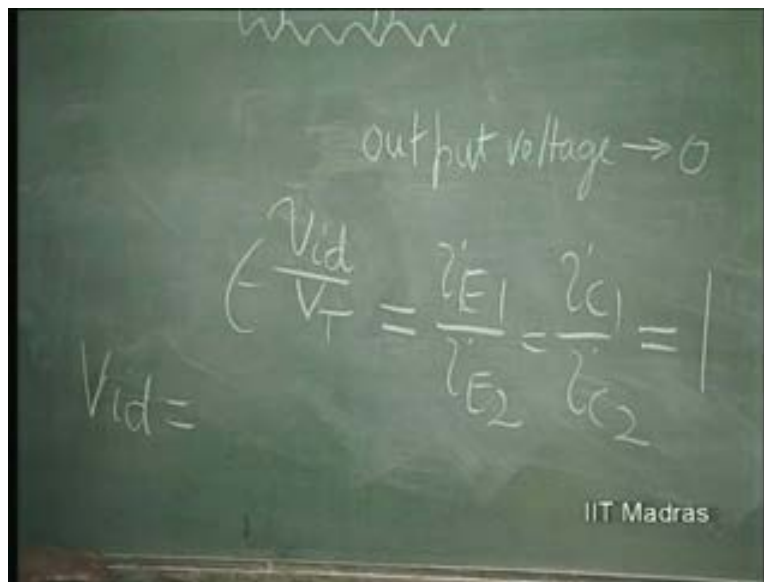 output voltage → 0
e^(Vid/VT) = iE1/iE2 = iC1/iC2 = 1
Vid =
IIT Madras